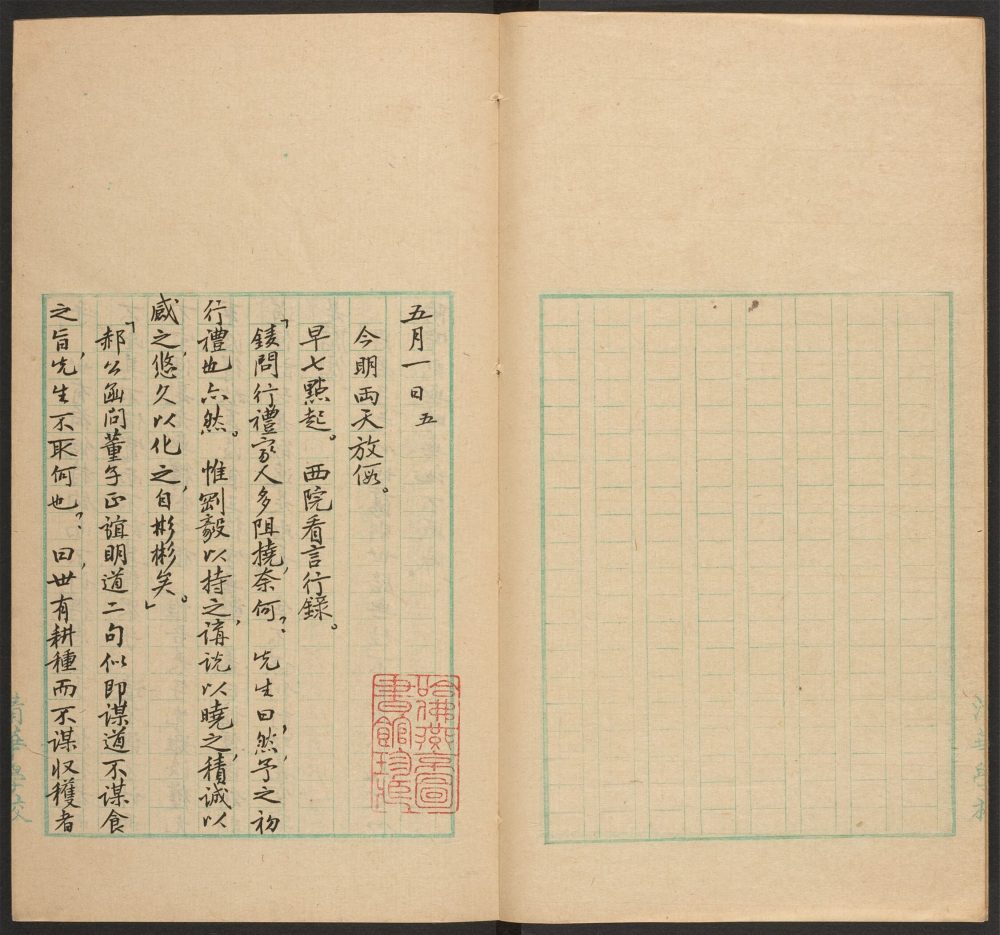 五月一日 五
今明兩天放假。
早七點起。 西院看言行錄。
「錂問行禮家人多阻撓,奈何?」 先生曰,然,予之初
行禮也亦然。 惟剛毅以持之,講說以曉之,積誠以
感之,悠久以化之,自彬彬矣。」
「郝公函問董子正誼明道二句似即謀道不謀食
之旨,先生不取何也?, 曰,世有耕種而不謀收穫者
哈佛燕京圖
書館珍藏印
清華學校